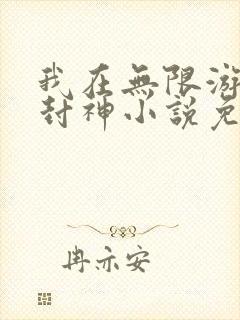 我在無限游
封神小說免
冉亦安